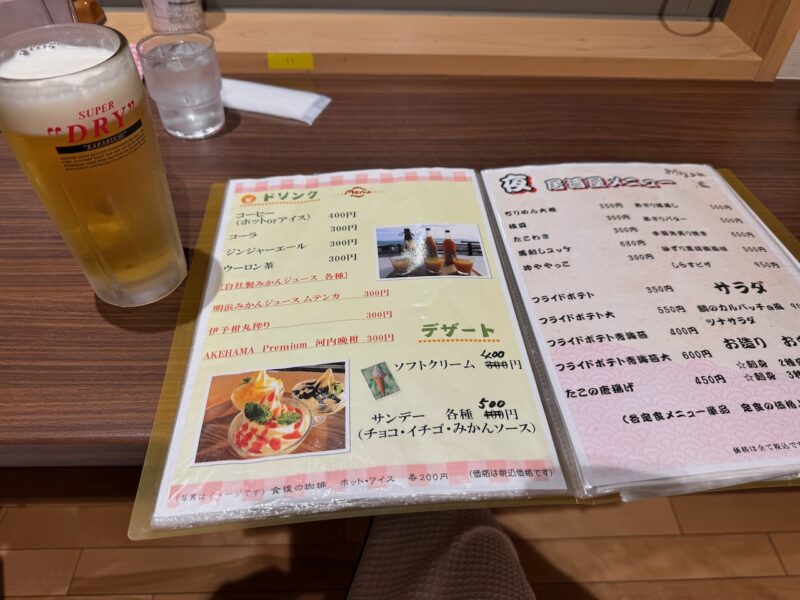 SUPER
"DRY"
"KARAKUCHI"
ドリンク
Menu
コーヒー
(ホットorアイス) 400円
コーラ 300円
ジンジャーエール 300円
ウーロン茶 300円
[自社製みかんジュース 各種]
明浜みかんジュース ムテンカ 300円
伊予柑丸搾り 300円
AKEHAMA Premium 河内晩柑 300円
デザート
ソフトクリーム 400 300円
サンデー 各種 500 400円
(チョコ・イチゴ・みかんソース)
(写真はイメージです) 食後の珈琲 ホット・アイス 各200円 (価格は税込価格です)
夜 居酒屋メニュー
ちりめん大根 350円
枝豆 300円
たこわさ 300円
馬刺しユッケ 680円
冷ややっこ 300円
あさり酒蒸し 500円
あさりバター 500円
しらすピザ 950円
フライドポテト 350円
フライドポテト大 550円
フライドポテト青海苔 400円
フライドポテト青海苔大 600円
たこの唐揚げ 450円
サラダ
鯛のカルパッチョ風
ツナサラダ
お造り
☆鯛刺身 2種
☆鯛刺身 3種
(各定食メニュー単品 定食の価格
価格は全て税込